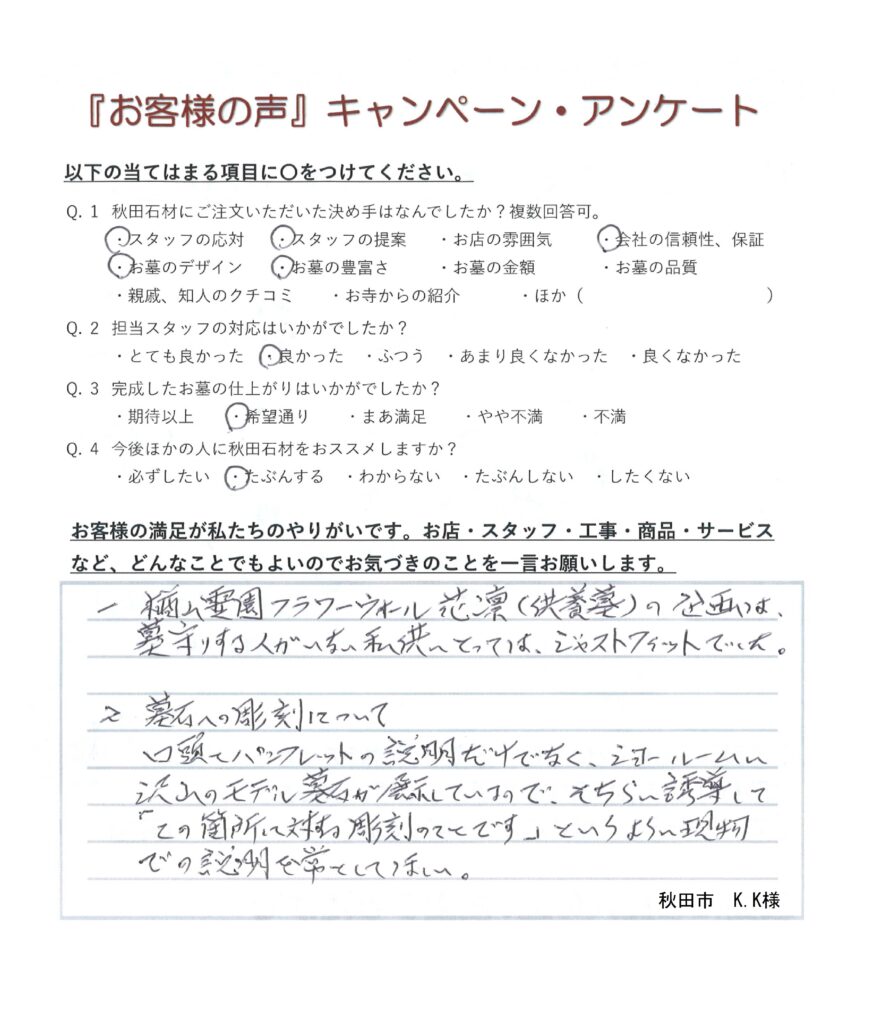 『お客様の声』キャンペーン・アンケート
以下の当てはまる項目に〇をつけてください。
Q. 1 秋田石材にご注文いただいた決め手はなんでしたか？複数回答可。
・スタッフの応対 ・スタッフの提案 ・お店の雰囲気 ・会社の信頼性、保証
・お墓のデザイン ・お墓の豊富さ ・お墓の金額 ・お墓の品質
・親戚、知人のクチコミ ・お寺からの紹介 ・ほか（ ）
Q. 2 担当スタッフの対応はいかがでしたか？
・とても良かった ・良かった ・ふつう ・あまり良くなかった ・良くなかった
Q. 3 完成したお墓の仕上がりはいかがでしたか？
・期待以上 ・希望通り ・まあ満足 ・やや不満 ・不満
Q. 4 今後ほかの人に秋田石材をおススメしますか？
・必ずしたい ・たぶんする ・わからない ・たぶんしない ・したくない
お客様の満足が私たちのやりがいです。お店・スタッフ・工事・商品・サービス
など、どんなことでもよいのでお気づきのことを一言お願いします。
一 楢山霊園フラワーウォール花凛（供養墓）の企画は、
墓守りする人がいない私供にとっては、ジャストフィットでした。
2 墓石への彫刻について
口頭でパンフレットの説明だけでなく、ショールームに
沢山のモデル墓石が展示しているので、そちらに誘導して
「この箇所に対する彫刻のことです」というように現物
での説明を常としてほしい。
秋田市 K.K様